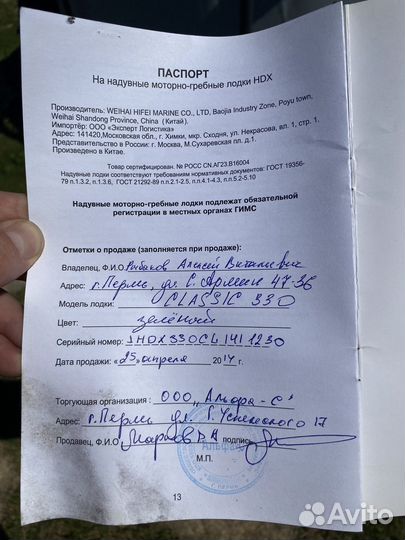 ПАСПОРТ
На надувные моторно-гребные лодки HDX
Производитель: WEIHAI HIFEI MARINE CO., LTD, Baojia Industry Zone, Poyu town,
Weihai Shandong Province, China (Китай).
Импортёр: ООО «Эксперт Логистика»
Адрес: 141420,Московская обл., г. Химки, мкр. Сходня, ул. Некрасова, вл. 1, стр. 1.
Представительство в России: г. Москва, М.Сухаревская пл. д.1.
Произведено в Китае.
Товар сертифицирован. № РОСС CN.АГ23.В16004
Надувные лодки соответствуют требованиям нормативных документов: ГОСТ 19356-
79 п.1.3.2, п.1.3.6, ГОСТ 21292-89 п.п.2.1-2.5, п.п.4.1-4.3, п.п.5.2-5.10
Надувные моторно-гребные лодки подлежат обязательной
регистрации в местных органах ГИМС
Отметки о продаже (заполняется при продаже):
Владелец, Ф.И.О. Рыбаков Алексей Витальевич
Адрес: г. Пермь, ул. С. Армии 47-36
Модель лодки: CLASSIC 330
Цвет: зелёный
Серийный номер: HDX330CL1411230
Дата продажи: «25» апреля 2014 г.
Торгующая организация: ООО „Альфа-С"
Адрес: г. Пермь ул. Г. Успенского 17
Продавец, Ф.И.О. подпись
М.П.
13
Avito